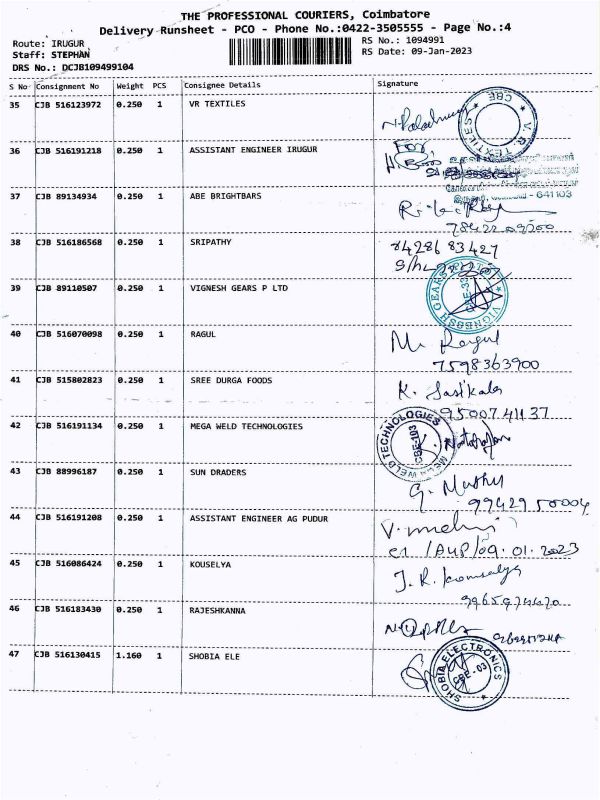 THE PROFESSIONAL COURIERS, Coimbatore
Delivery Runsheet - PCO - Phone No.:0422-3505555 - Page No.:4
Route: IRUGUR
RS No.: 1094991
Staff: STEPHAN
RS Date: 09-Jan-2023
DRS No.: DCJB109499104
S No Consignment No Weight PCS Consignee Details Signature
35 CJB 516123972 0.250 1 VR TEXTILES
V. R. TEXTILES CBE
36 CJB 516191218 0.250 1 ASSISTANT ENGINEER IRUGUR
For
641103
37 CJB 89134934 0.250 1 ABE BRIGHTBARS
38 CJB 516186568 0.250 1 SRIPATHY
84286 83427
39 CJB 89110507 0.250 1 VIGNESH GEARS P LTD
VIGNESH GEARS
40 CJB 516070098 0.250 1 RAGUL
M. Ragul
7598363900
41 CJB 515802823 0.250 1 SREE DURGA FOODS
K. Sasikala
9500741137
42 CJB 516191134 0.250 1 MEGA WELD TECHNOLOGIES
MEGA WELD TECHNOLOGIES
CBE-103
K. Natarajan
43 CJB 88996187 0.250 1 SUN DRADERS
G. Muthu
99429 50004
44 CJB 516191208 0.250 1 ASSISTANT ENGINEER AG PUDUR
09.01.2023
45 CJB 516086424 0.250 1 KOUSELYA
J. R. kowsalya
46 CJB 516183430 0.250 1 RAJESHKANNA
47 CJB 516130415 1.160 1 SHOBIA ELE
SHOBIA ELECTRONICS
CBE-03